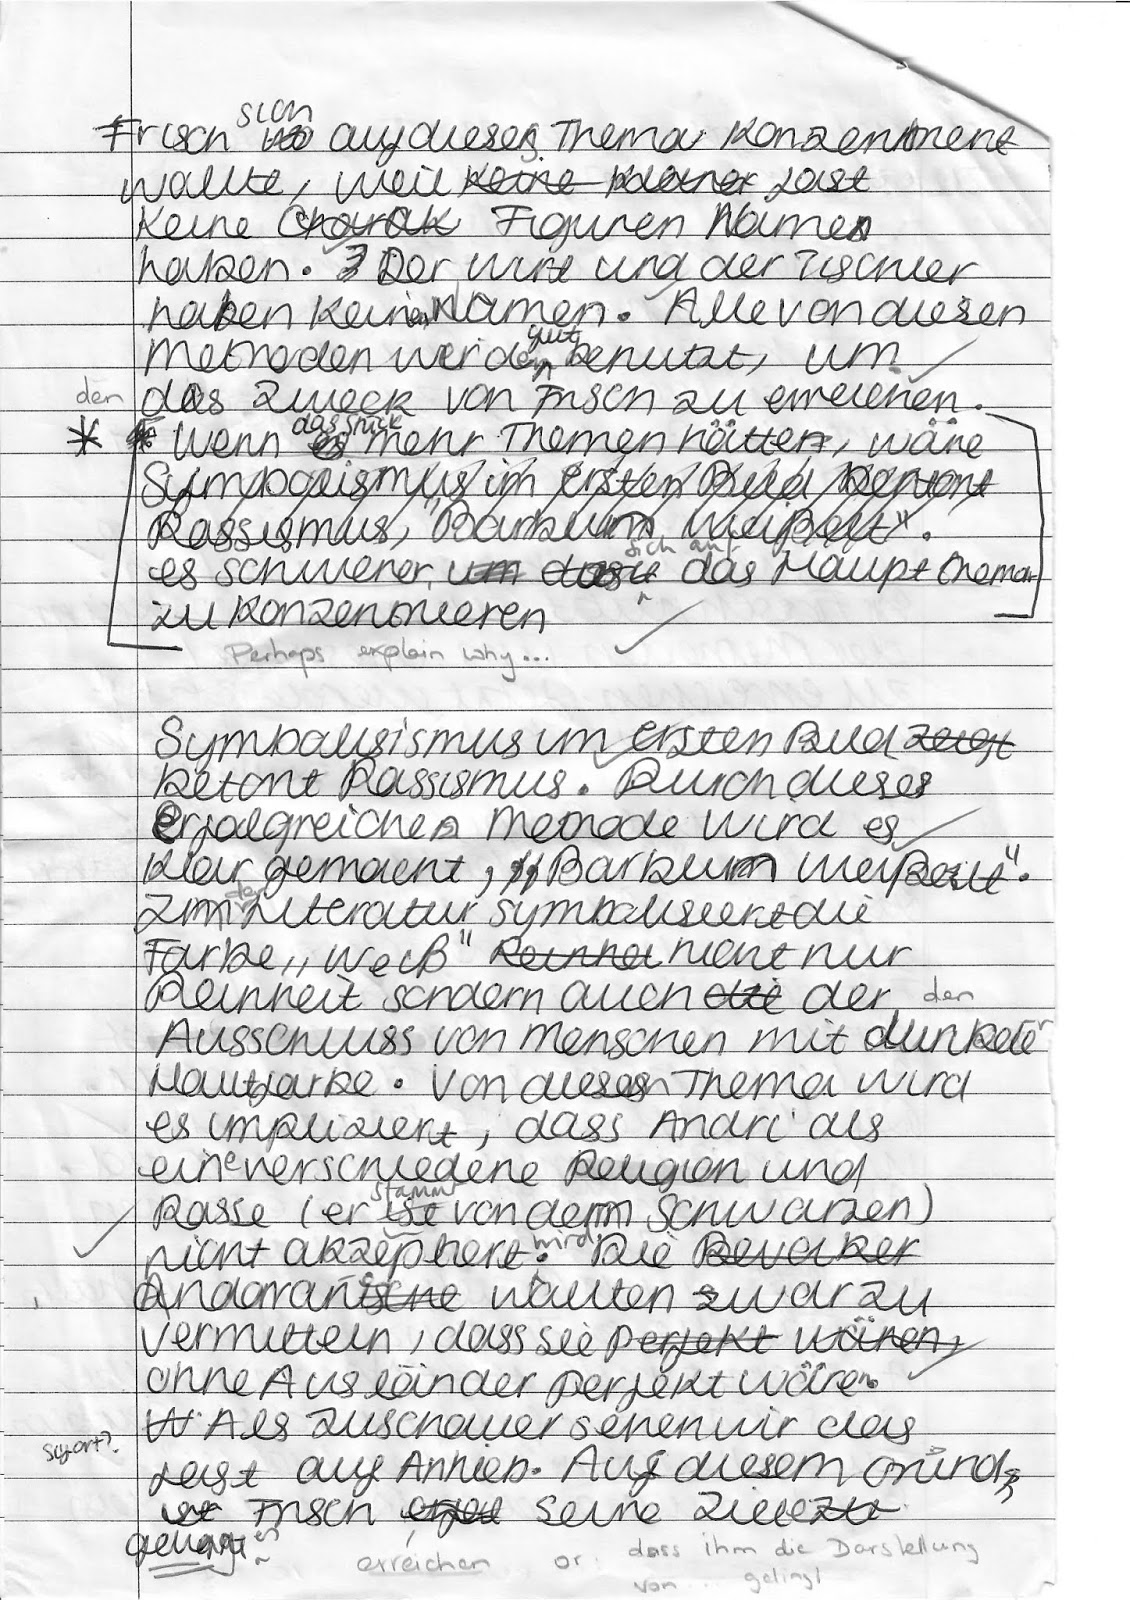 sich
Frisch auf dieses Thema konzentriert
wollte, weil keine fast
keine Charak Figuren Namen
haben. Der Wirt und der Tischler
haben keinen Namen. Alle von diesen
gut
Methoden werden benutzt, um
den das Zweck von Frisch zu erreichen.
das Stück
* Wenn es mehr Themen hätten, wäre
Symbolismus im ersten Bild betont
Rassismus, "Barblin weißelt".
sich auf
es schwerer, um das Hauptthema
zu konzentrieren
Perhaps explain why...
Symbolisismus im ersten Bild zeigt
betont Rassismus. Durch dieses
erfolgreichen Methode wird es
klar gemacht, „Barblin weißelt".
der
Im Literatur symbolisiert die
Farbe „weiß" Reinheit nicht nur
Reinheit sondern auch die der den
Ausschluss von Menschen mit dunkeler
Hautfarbe. Von diesem Thema wird
es impliziert, dass Andri als
eine verschiedene Religion und
stammt
Rasse (er ist von dem Schwarzen)
wird
nicht akzeptiert. Die
Andorraner wollten zwar zu
vermitteln, dass sie perfekt wären,
ohne Ausländer perfekt wären.
Als Zuschauer sehen wir das
sofort?
fast auf Anhieb. Auf diesem Grund
ist Frisch seine Ziele
gelungen
erreichen or: dass ihm die Darstellung
von ... gelingt